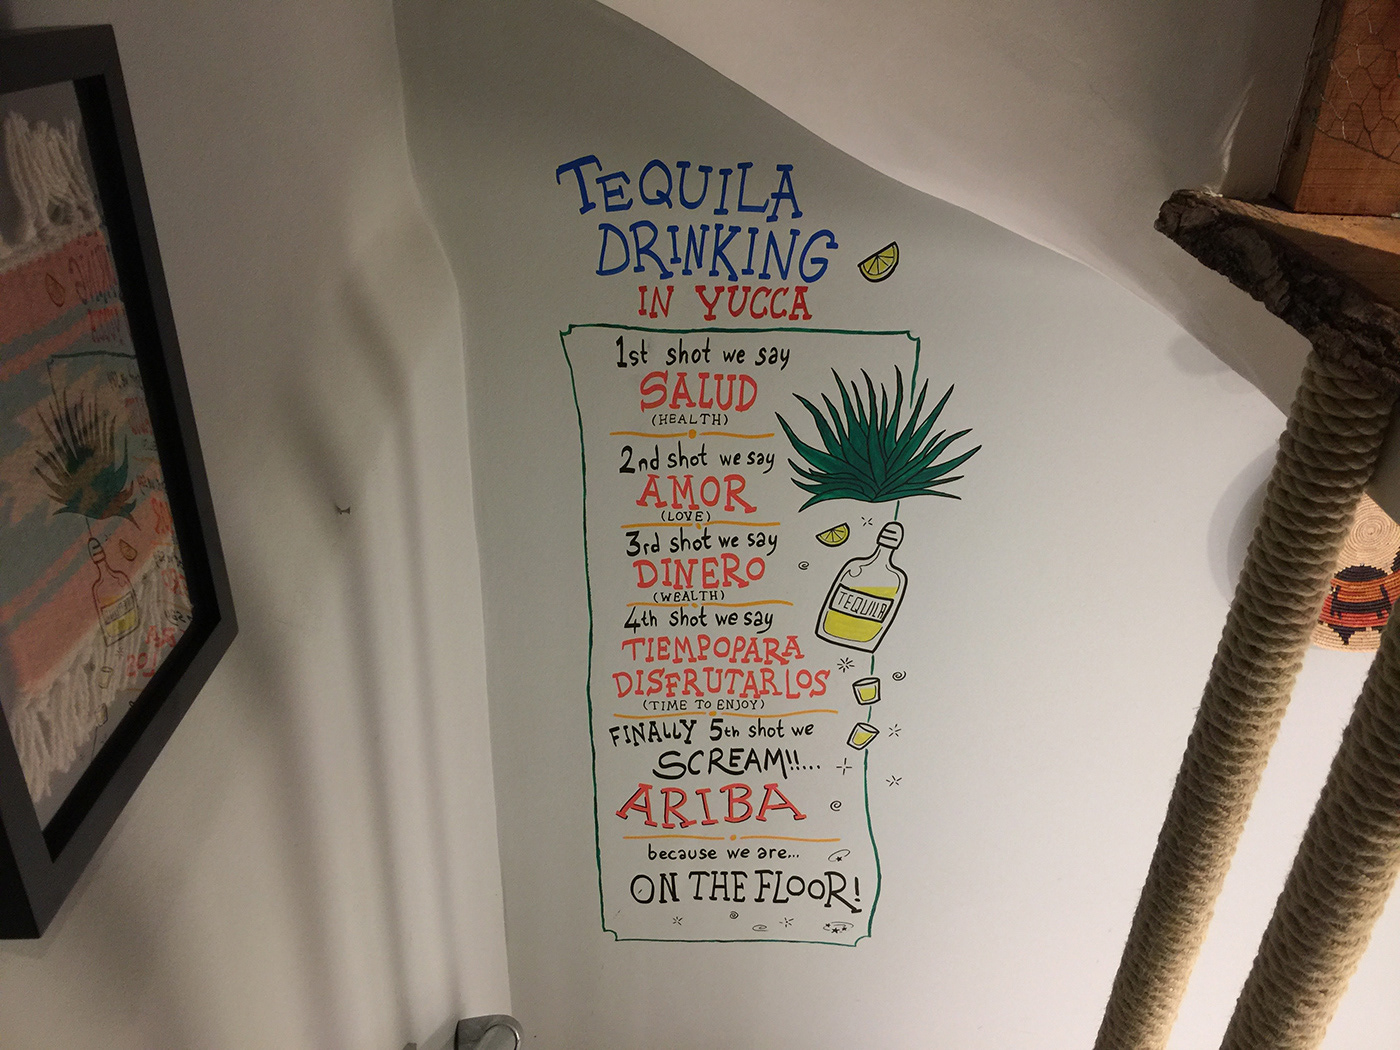 TEQUILA
DRINKING
IN YUCCA
1st shot we say
SALUD
(HEALTH)
2nd shot we say
AMOR
(LOVE)
3rd shot we say
DINERO
(WEALTH)
4th shot we say
TIEMPOPARA
DISFRUTARLOS
(TIME TO ENJOY)
FINALLY 5th shot we
SCREAM!!...
ARIBA
because we are...
ON THE FLOOR!
TEQUILA